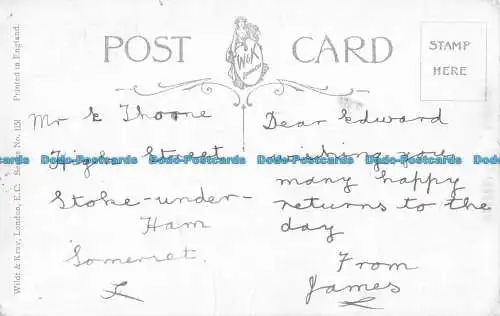 POST CARD
W&K
LONDON
STAMP
HERE
Mr E Thorne
High Street
Stoke-under-
Ham
Somerset.
Dear Edward
wishing you
many happy
returns to the
day
From
James
Dodo-Postcards Dodo-Postcards Dodo-Postcards Dodo-Postcards
Wildt & Kray, London, E.C. Series No. 1151 Printed in England.